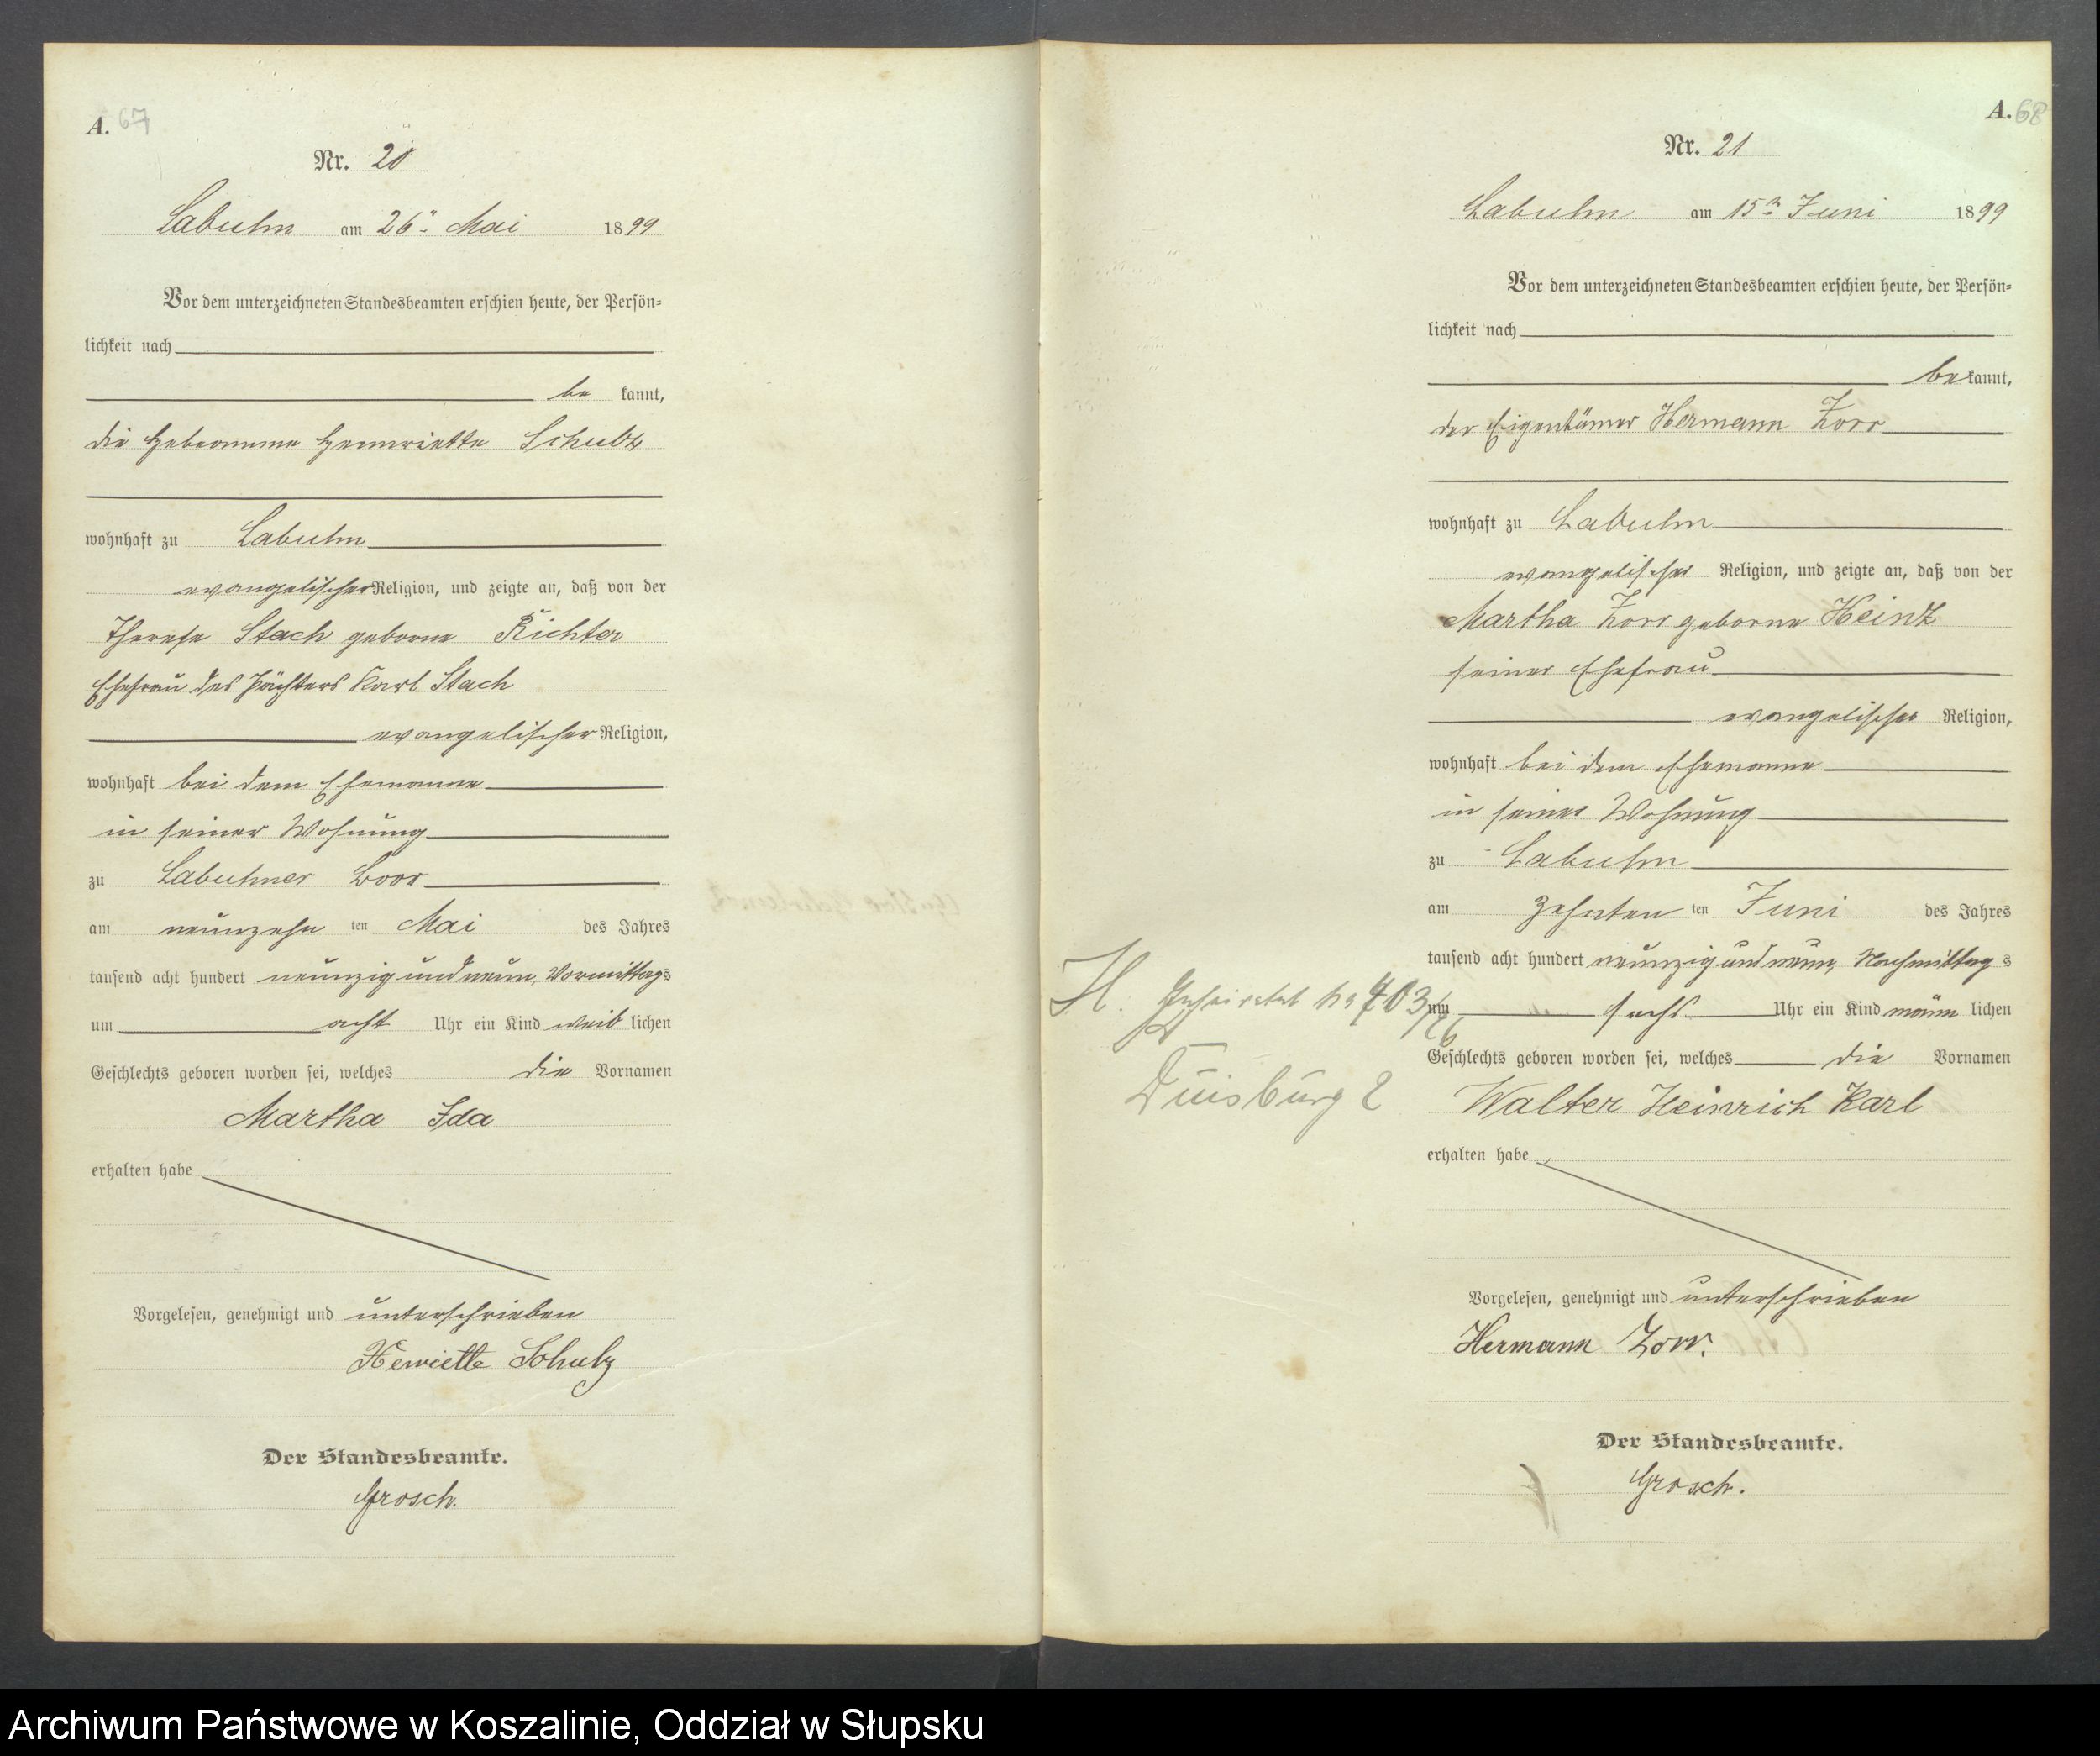 A. 67
Nr. 20
Labuhn am 26ⁿ Mai 1899
Vor dem unterzeichneten Standesbeamten erschien heute, der Persön-
lichkeit nach
be kannt,
die Hebeamme Hennriette Schulz
wohnhaft zu Labuhn
evangelischer Religion, und zeigte an, daß von der
Therese Stach geborne Richter
Ehefrau des Pächters Karl Stach
evangelischer Religion,
wohnhaft bei dem Ehemanne
in seiner Wohnung
zu Labuhner
am neunzehn ten Mai des Jahres
tausend acht hundert neunzig und neun, Vormittags
um acht Uhr ein Kind weib lichen
Geschlechts geboren worden sei, welches die Vornamen
Martha Ida
erhalten habe
Vorgelesen, genehmigt und unterschrieben
Henriette Schulz
Der Standesbeamte.
Grosch.
A. 68
Nr. 21
Labuhn am 15ⁿ Juni 1899
Vor dem unterzeichneten Standesbeamten erschien heute, der Persön-
lichkeit nach
be kannt,
der Eigentümer Hermann Zorr
wohnhaft zu Labuhn
evangelischer Religion, und zeigte an, daß von der
Martha Zorr geborne Heinz
seiner Ehefrau
evangelischer Religion,
wohnhaft bei dem Ehemanne
in seiner Wohnung
zu Labuhn
am Zehnten ten Juni des Jahres
tausend acht hundert neunzig und neun, Nachmittag s
um sechs Uhr ein Kind männ lichen
Geschlechts geboren worden sei, welches die Vornamen
Walter Heinrich Karl
erhalten habe
Vorgelesen, genehmigt und unterschrieben
Hermann Zorr.
Der Standesbeamte.
Grosch.
H.
Duisburg
Archiwum Państwowe w Koszalinie, Oddział w Słupsku